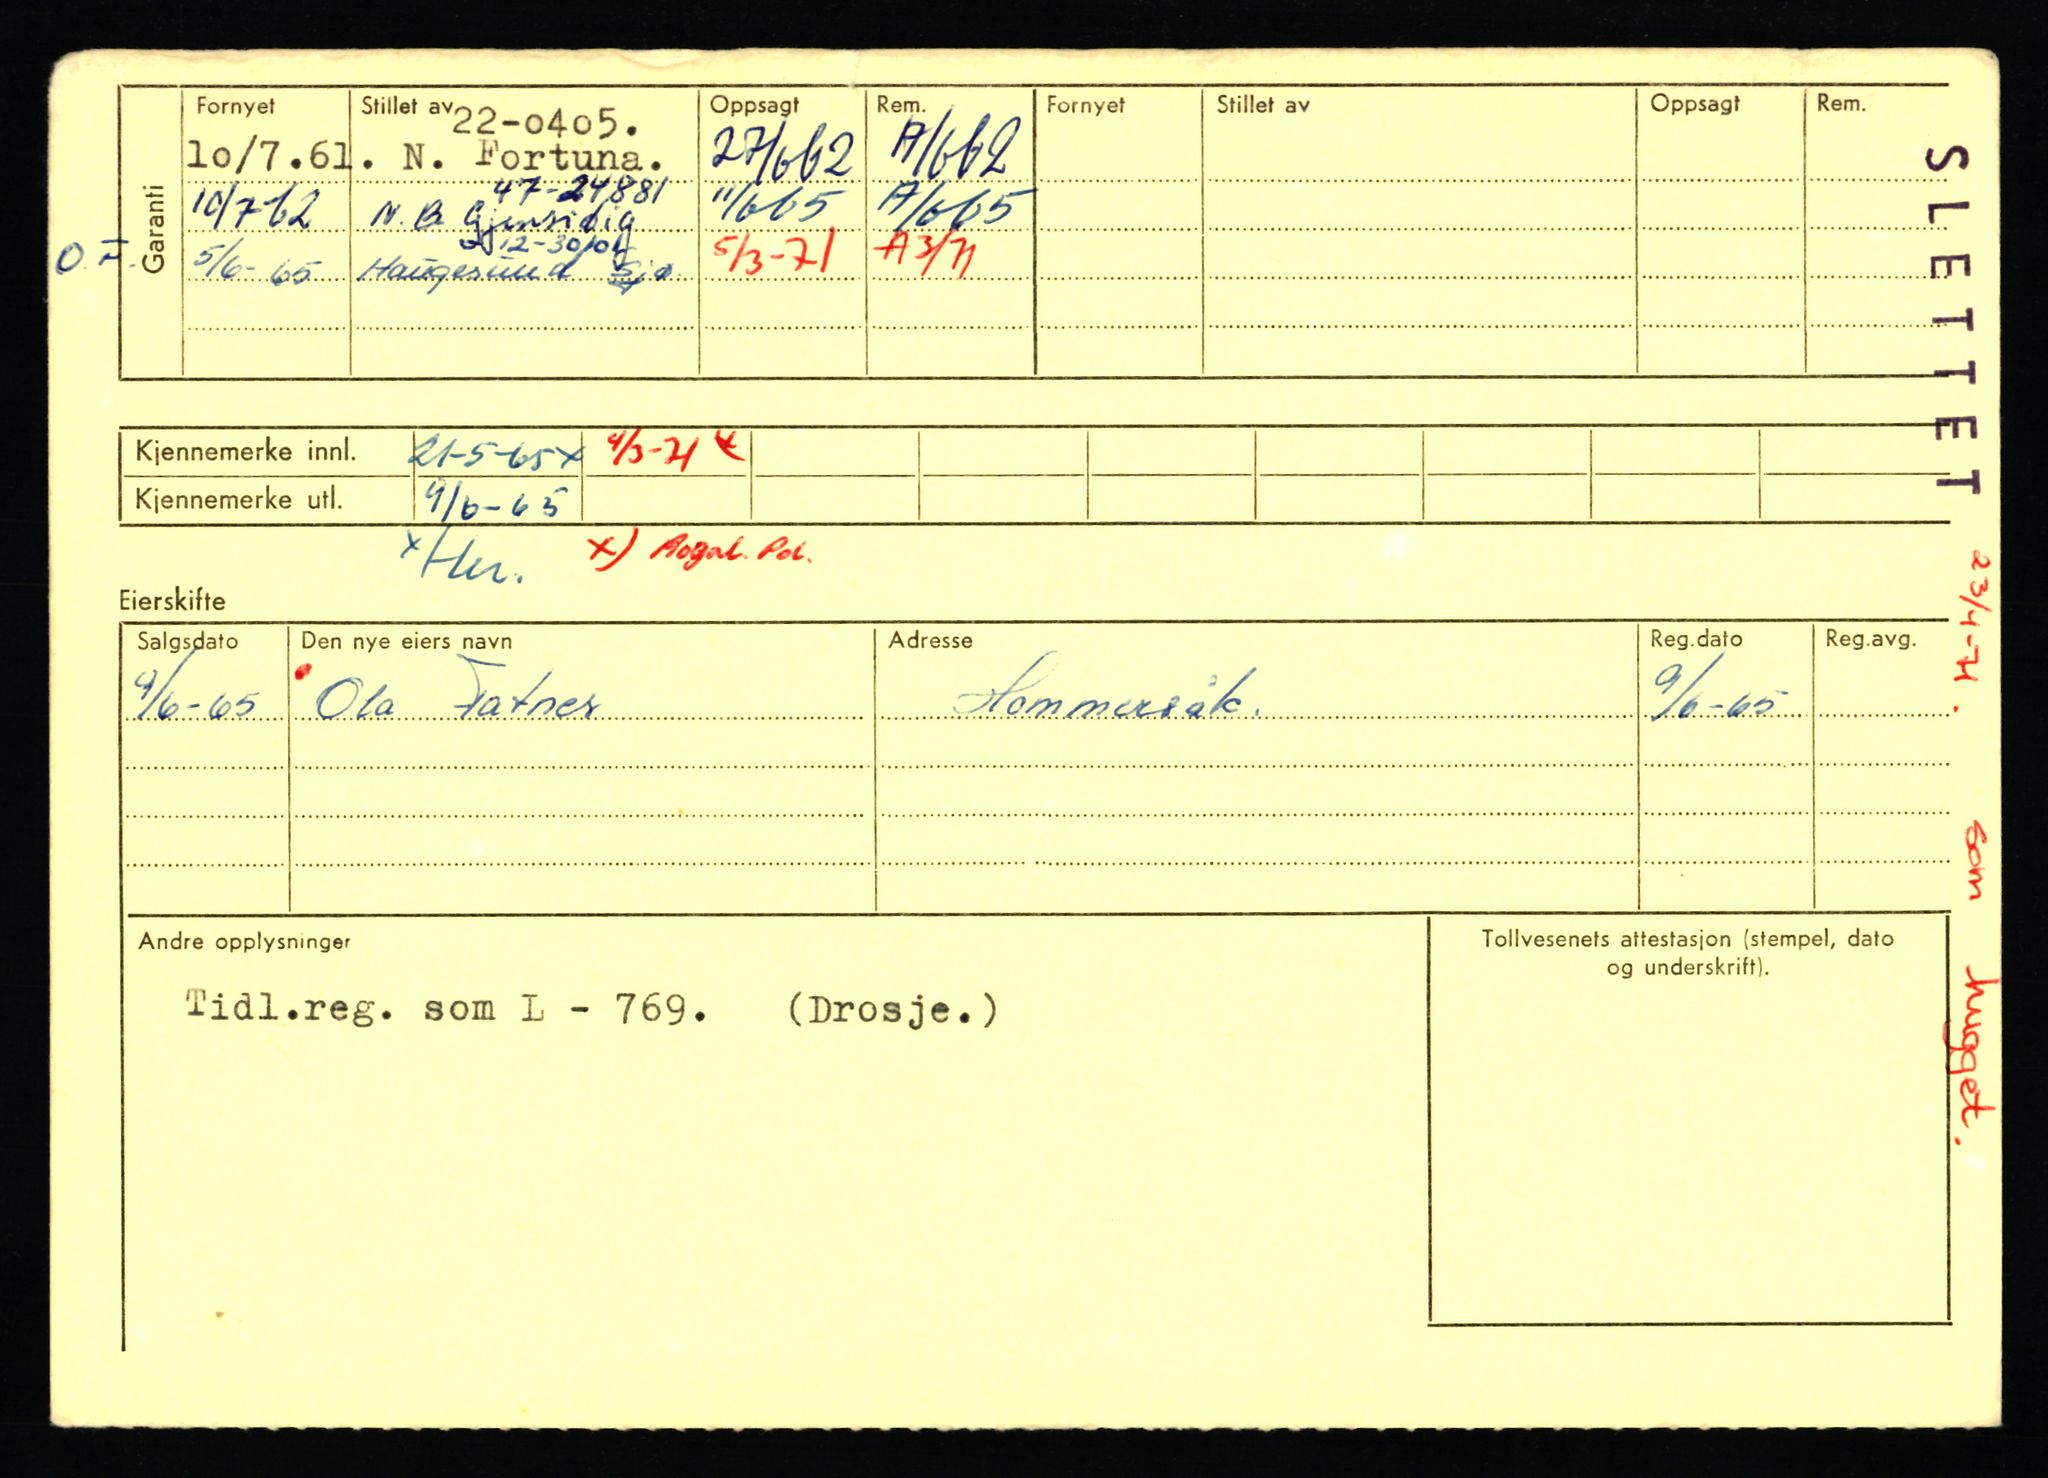 Garanti
Fornyet Stillet av Oppsagt Rem. Fornyet Stillet av Oppsagt Rem.
22-0405.
10/7.61. N. Fortuna. 27/6 62 A/6 62
47-24881
10/7-62 N. B. Gjensidig 11/6 65 A/6 65
O. F. 5/6-65 Haugesund Sjø 5/3-71 A 3/71
Kjennemerke innl. 21-5-65 x 4/3-71 x
Kjennemerke utl. 9/6-65
x) Rogal. Pol.
Eierskifte
Salgsdato Den nye eiers navn Adresse Reg.dato Reg.avg.
9/6-65 Ola Tatnes Hommersåk. 9/6-65
Andre opplysninger
Tidl.reg. som L - 769. (Drosje.)
Tollvesenets attestasjon (stempel, dato
og underskrift).
SLETTET
23/4-71. som hugget.